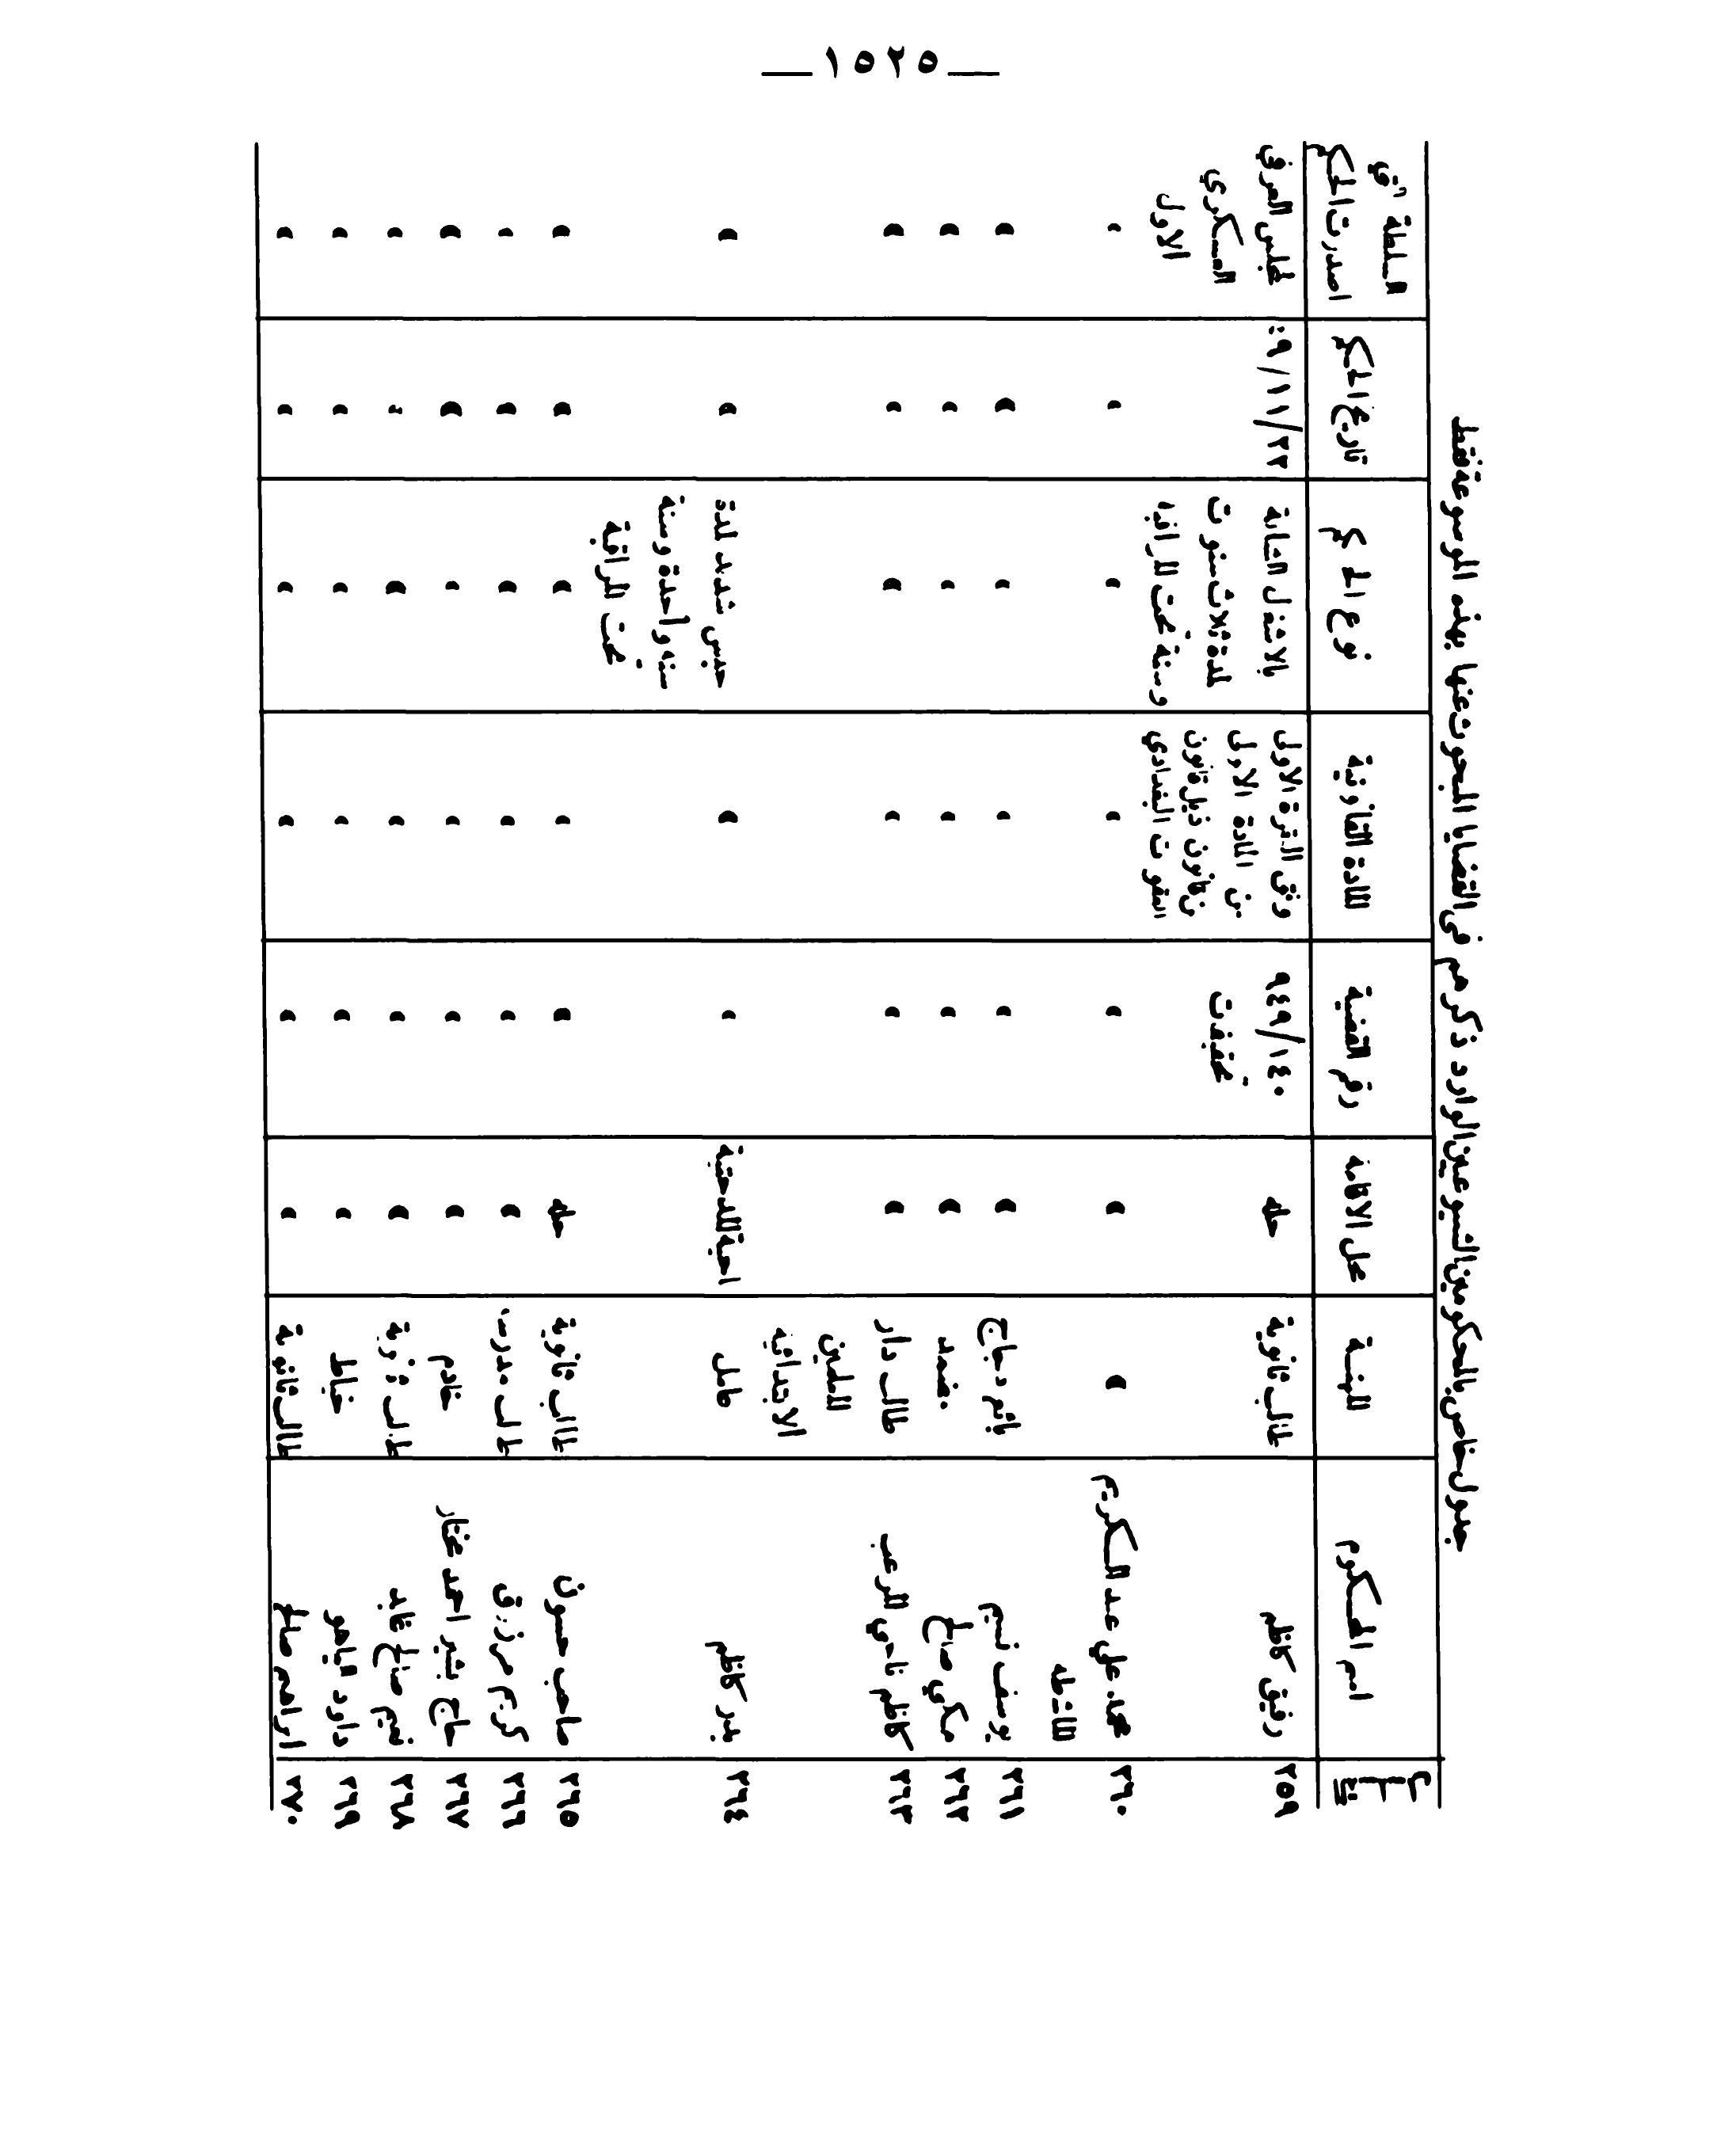 — ١٥٢٥ —
جدول خاص بالمحكومين الشيوعيين الوارد ذكرهم في القضايا المبحوث عنها بهذه الموسوعة فقط
اسم المحكوم
المهنة
محل الاقامة
رقم القضية
المادة القانونية
نوع الحكم
تاريخ الحكم
السلطة التي اصدرت الحكم
٢٥٩ رفيق كاظم
طالب ثانوية
حله
٩٤٩/١٤٠ تحقيقات
وفق الفقرة الاولى
من المادة الاولى
من قانون ذيل قانون
العقوبات البغدادي
بالاشغال الشاقة
لمدة ثلاث سنوات
وسنة تحت المراقبة
المجلس العرفي
العسكري
الاول
٢٦٠ محمد علي عبد الكريم
الماشطه
٢٦١ يوسف نسيم
بائع دجاج
٢٦٢ مكي صالح
مضمد
٢٦٣ كاظم ناجي
طالب دار
المعلمين
الابتدائية
٢٦٤ كاظم
عامل
حبس شديد لمدة
سنة واحدة وسنة
تحت المراقبة
٢٦٥ صاحب حسون
طالب ثانوية
حله
٢٦٦ كريم مرزوق
طالب
٢٦٧ حاج بشير احمد
خادم
٢٦٨ نسيم صالح
طالب ثانوية
٢٦٩ داود الياهو
خياط
٢٧٠ ابراهيم صالح
طالب ثانوية